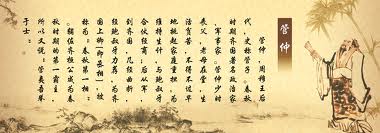 管仲
管仲，周穆王后
代，史称管子。春秋
时期齐国著名政治家
、军事家。管仲少时
丧父，老母在堂，生
活贫苦，不得不过早
地挑起家庭重担，为
维持生计，与鲍叔牙
合伙经商；后从军，
到齐国，几经曲折，
经鲍叔牙力荐，为齐
国上卿（即丞相），被
称为“春秋第一相”，
辅佐齐桓公成为春
秋时期的第一霸主，
所以又说“管夷吾举
于士”。